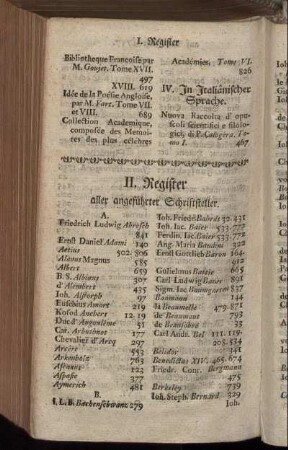 I. Register
Bibliotheque Francoise par
M. Goujet. Tome XVII.
497
XVIII. 619
Idée de la Poësie Angloise,
par M. Yart. Tome VII.
et VIII. 689
Collection Academique,
composée des Memoi-
res des plus célébres
Académies. Tome VI.
826
IV. In Italiänischer
Sprache.
Nuova Raccolta d'opu-
scoli Scientifici e filolo-
gici, di P. Calogera. To-
mo I. 467
II. Register
aller angeführter Schriftsteller.
A.
Friedrich Ludwig Abresch
841
Ernst Daniel Adami 140
Aetius 502. 806
Alanus Magnus 585
Albert 659
B. S. Albinus 307
d'Alembert 435
Joh. Allforph 97
Eusebius Amort 219
Kosod Auchery 12. 19
Duc d'Angoulême 51
Car. Arbuthnot 177
Chevalier d'Arcq 297
Arcére 553
763
123
Aspasie 377
Aymerich 481
B.
f. L. B. Bachenschwanz 279
Joh. Friedr. Bahrdt 32. 431
Joh. Jac. Baier 533. 777
Ferdin. Jac. Baier 533
Ang. Maria Bandini 322
Ernst Gottlieb Baron 364.
Gulielmus Bateje 685
Carl Ludwig Bauer 891
Sigm. Jac. Baumgarten 837
Baumann 144
la Beaumelle 479. 871
de Beaumont
de Beausobre
Carl Andr. Bel 111. 119.
205. 534
Belidor 341
Benedictus XIV. 465. 674
Friedr. Conr. Bergmann
475
Berkeley 739
Joh. Steph. Bernard 329
Joh.